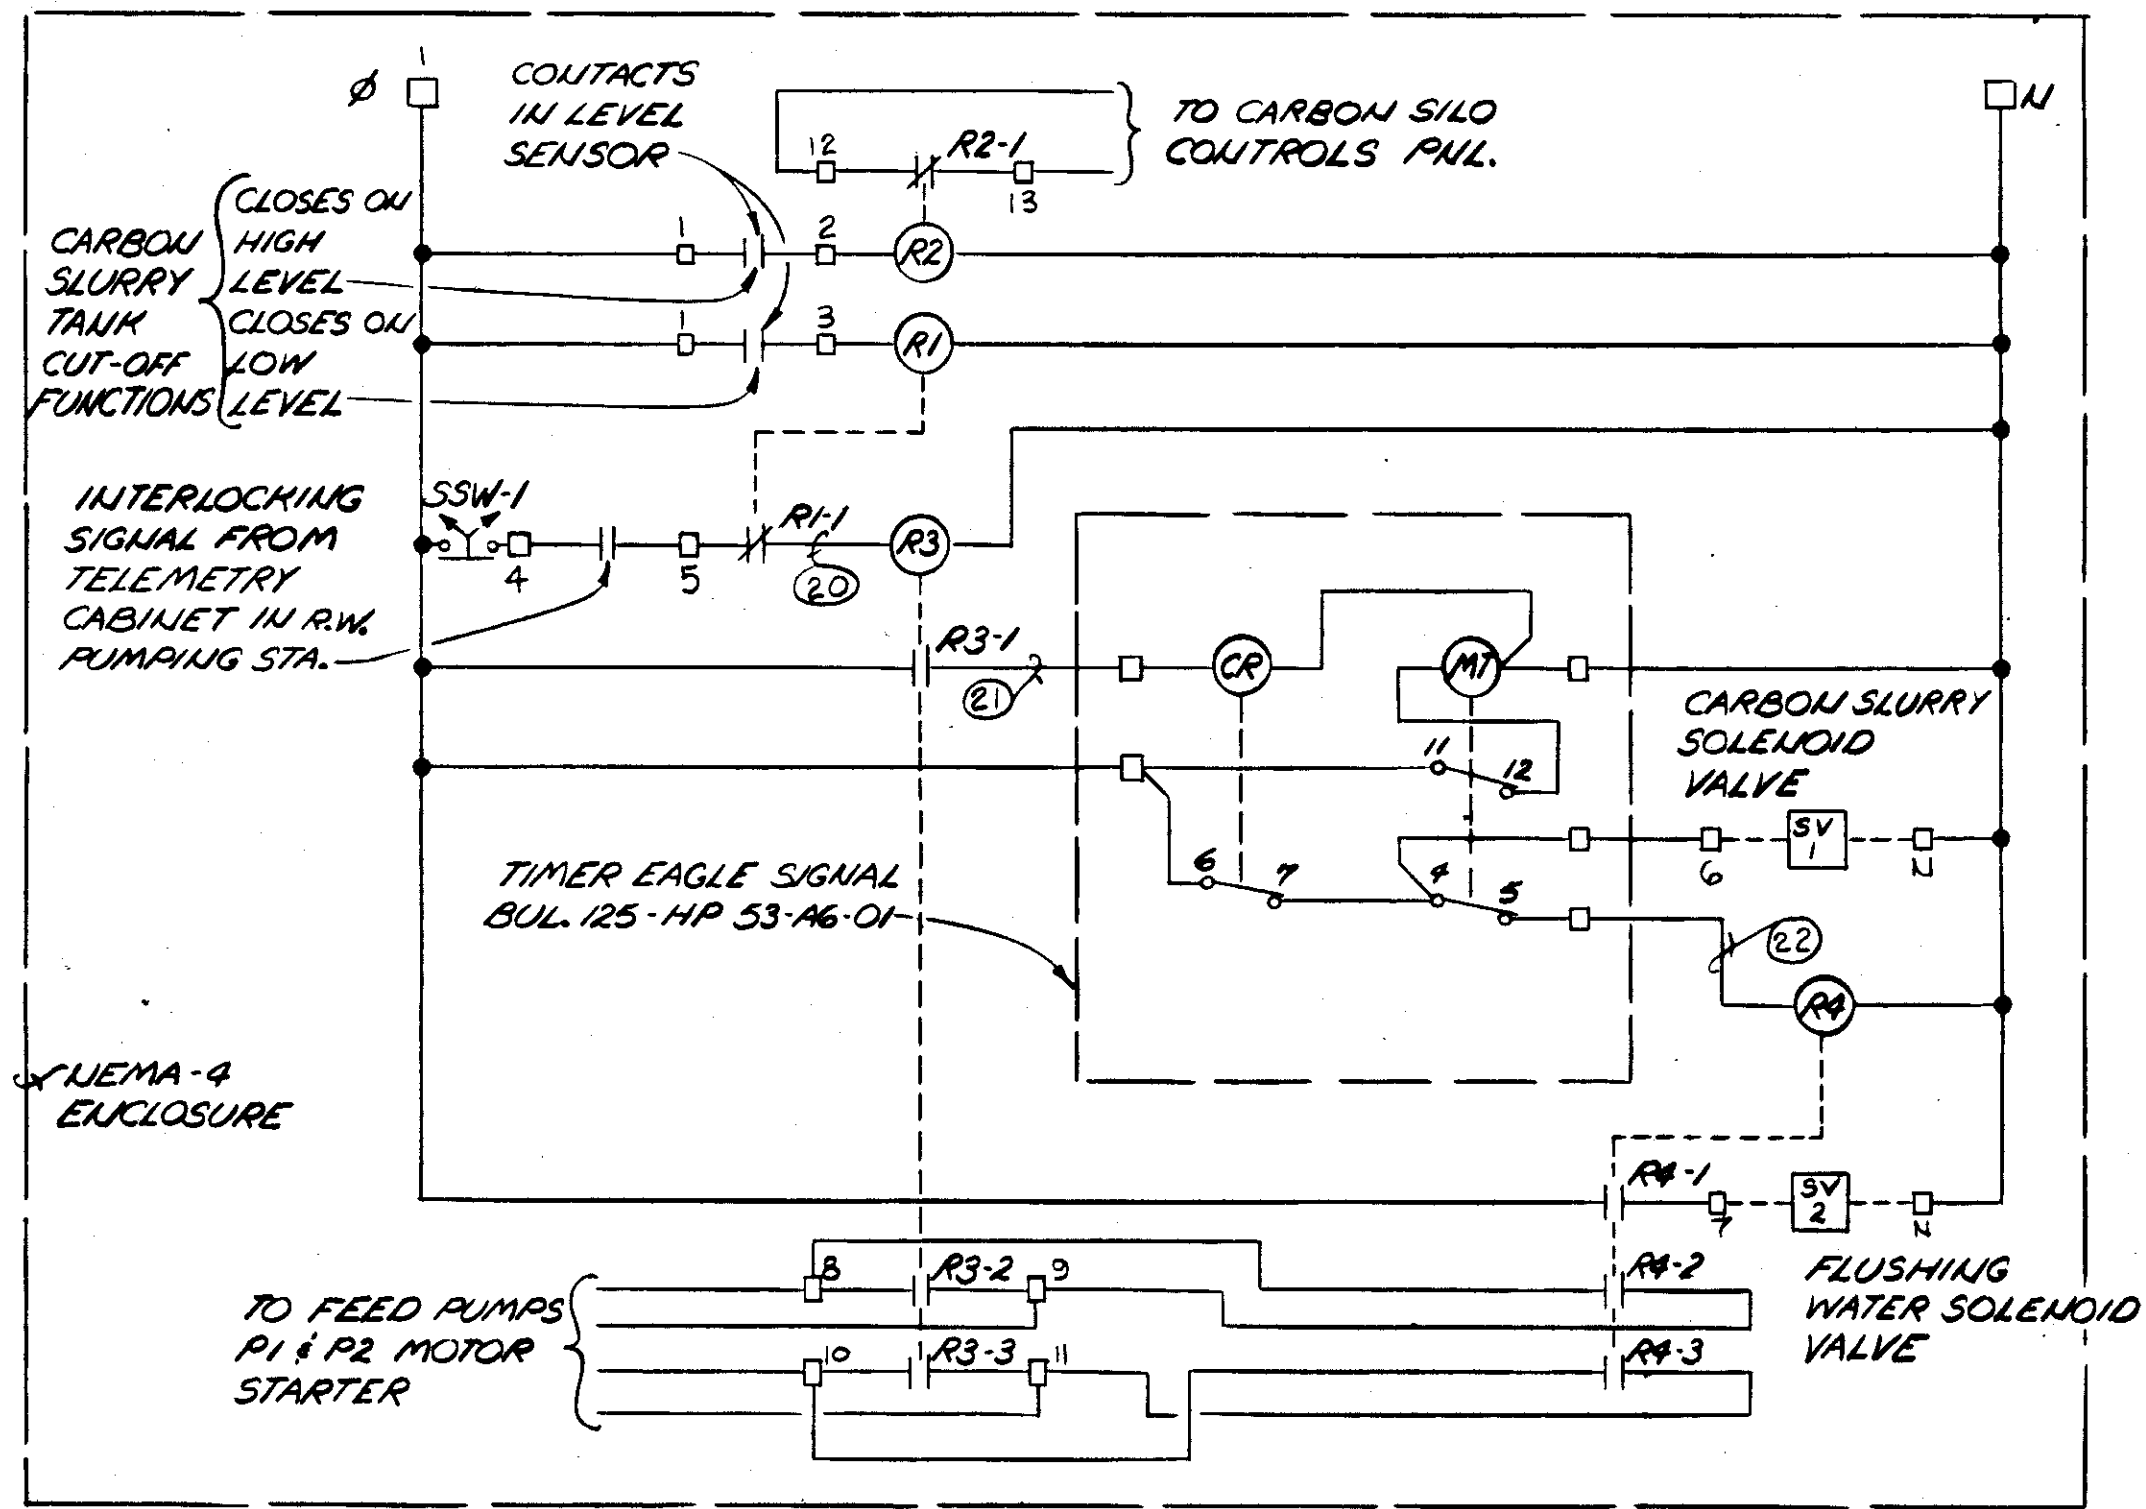 1
Ø
N
CONTACTS
IN LEVEL
SENSOR
TO CARBON SILO
CONTROLS PNL.
12
R2-1
13
CARBON
SLURRY
TANK
CUT-OFF
FUNCTIONS
CLOSES ON
HIGH
LEVEL
CLOSES ON
LOW
LEVEL
1
2
R2
1
3
R1
INTERLOCKING
SIGNAL FROM
TELEMETRY
CABINET IN R.W.
PUMPING STA.
SSW-1
4
5
R1-1
20
R3
R3-1
21
CR
MT
11
12
6
7
4
5
TIMER EAGLE SIGNAL
BUL. 125-HP 53-A6-01
CARBON SLURRY
SOLENOID
VALVE
6
SV
1
N
22
R4
NEMA-4
ENCLOSURE
R4-1
7
SV
2
N
FLUSHING
WATER SOLENOID
VALVE
TO FEED PUMPS
P1 & P2 MOTOR
STARTER
8
R3-2
9
R4-2
10
R3-3
11
R4-3